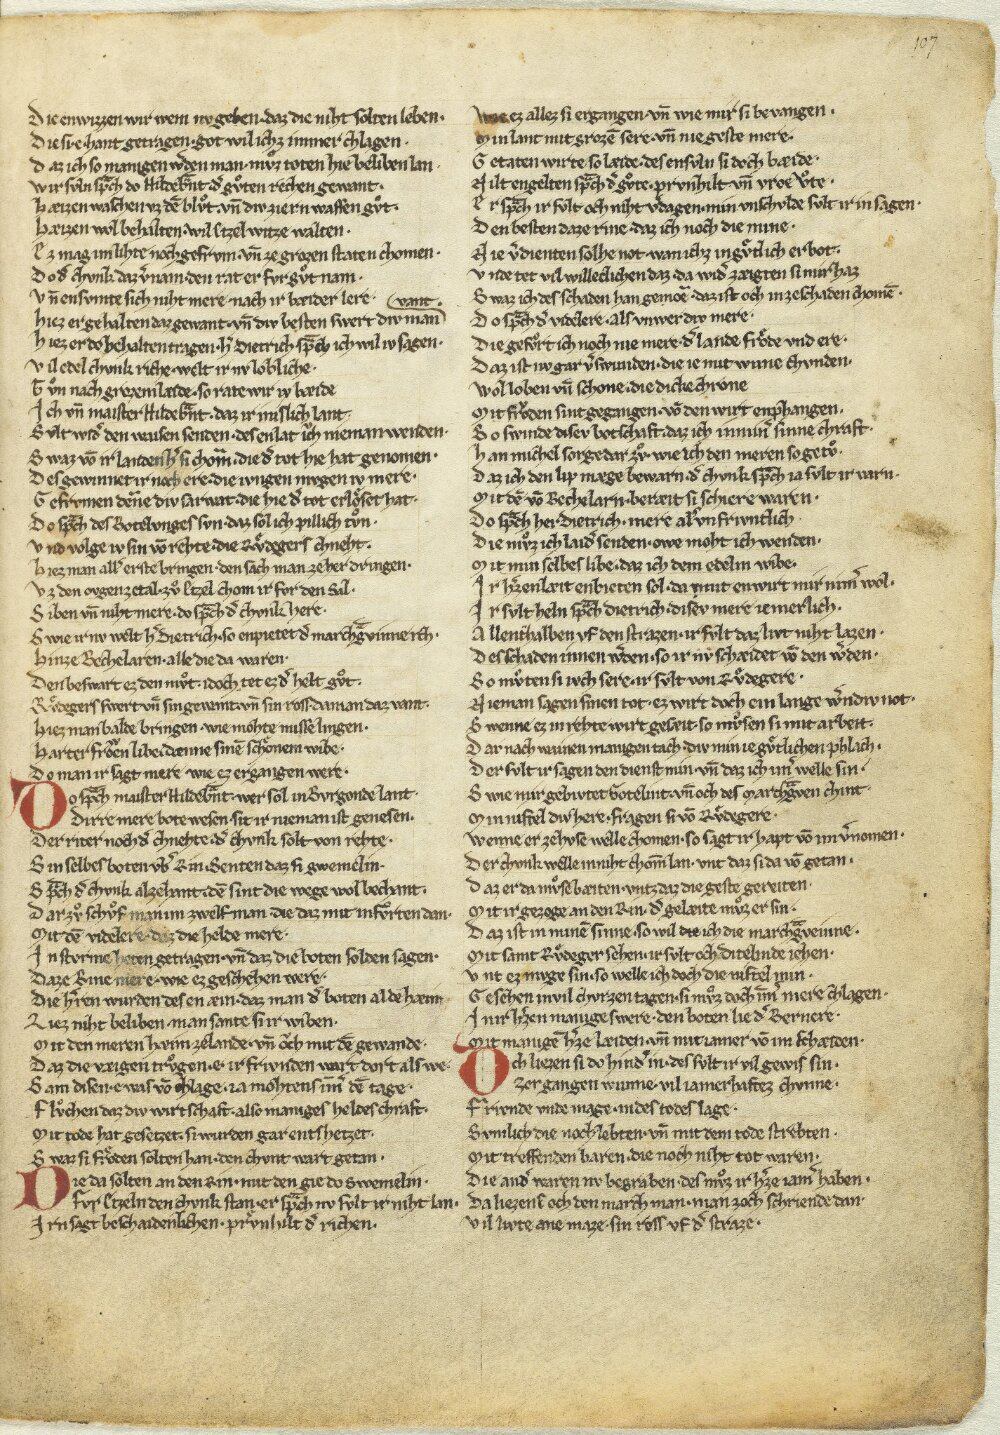 107
Die enwizzen wir wem nv geben · daz die niht solten leben ·
Die si e hant getragen · got wil ichz immer chlagen ·
Daz ich so manigen wͤden man · mvͦz toten hie beliben lan ·
wir svln sp̄ch do Hildebn̄t · dͤ gvͦten rechen gewant ·
Hæizen waschen vz dē blvͦt · vn̄ div ziern waffen gvͦt ·
Hæizen wol behalten · wil Etzel witze walten ·
Ez mag im lihte noch gefrvm · vn̄ ze grozen staten chomen ·
Do dͤ chvnk daz vͤnam · den rat er for gvͦt nam ·
Vn̄ ensvmte sich niht mere · nach ir bæider lere ·
hiez er gehalten daz gewant · vn̄ div besten swert div man vant ·
hiez er do behalten tragen · hͤ Dietrich sp̄ch ich wil iv sagen ·
Vil edel chvnk riche · welt ir nv lobliche ·
Tvͦn nach grozem læide · so rate wir iv bæide
Ich vn̄ maister Hildebn̄t · daz ir mislich lant ·
Svlt widͤ den weisen senden · des enlat ivch nieman wenden ·
Swaz vō ir landen hͤ si chom̄ · die dͤ tot hie hat genomen ·
Des gewinnet ir noch ere · die ivngen mvgen iv mere ·
Gefrvmen dēne div sarwat · die hie dͤ tot erlôset hat ·
Do sp̄ch des Botelvnges svn · daz sol ich pillich tvͦn ·
Vnd volge iv sin vō rehte · die Rvͦdegers chneht ·
Hiez man allͤ erste bringen · den sach man zeher dringen ·
Vz den ovgen zetal · zvͦ Etzel chom ir for den sal ·
Siben vn̄ niht mere · do sp̄ch dͤ chvnk here ·
Swie ir nv welt hͤ Dietrich · so enpietet dͤ marchg̊vinne rich ·
Hinze Bechelaren · alle die da waren ·
Den beswart ez den mvͦt · idoch tet ez dͤ helt gvͦt ·
Rvͦdegers swert vn̄ sin gewant · vn̄ sin ross da man daz vant ·
Hiez man balde bringen · wie mohte missͤlingen ·
Harter frôͤn libe · danne sinē schônem wibe ·
Do man ir sagt mere · wie ez ergangen were ·
Do sp̄ch maister Hildebn̄t · wer sol in Bvrgonde lant ·
Dirre mere bote wesen · sit ir nieman ist genesen ·
Der riter noch dͤ chnehte · dͤ chvnk solt von rehte ·
Sin selbes boten vbͤ Rin · Senten daz si Swemelin ·
Sp̄ch dͤ chvnk alzehant · dē sint die wege wol bechant ·
Dar zvͦ schvͦf man im zwelf man · die daz mit im fvͦrten dan ·
Mit dē videlere · daz die helde mere ·
In sturme heten getragen · vn̄ daz die boten solden sagen ·
Daze Rine mere · wie ez geschehen were ·
Die hͤren wurden des en æin · daz man dͤ boten al de hæim
Liez niht beliben · man sante si ir wiben ·
Mit den meren hæim ze lande · vn̄ ôch mit dē gewande ·
Daz die væigen trvͦgen · e · ir frivnden wart dort als we ·
Sam disen · e · was vō chlage · ia mohtens im̄ dē tage ·
Flvͦchen daz div wirtschaft · also maniges heldes chraft ·
Mit tode hat gesetzet · si wurden gar entshetzet ·
Swaz si frôden solten han · den chvnt wart getan ·
Die da solten an den Rin · mit den gie do Swemelin ·
Fvr Etzeln den chvnk stan · er sp̄ch nv svlt ir niht lan ·
Irn sagt beschaidenlichen · prvͦnhilt dͤ richen ·
Wie ez allez si ergangen · vn̄ wie mir si bevangen ·
Min lant mit grozē sere · vn̄ nie geste mere ·
Getaten wirte so læide · des ensvln si doch bæide ·
Niht engelten sp̄ch dͤ gvͦte · prvnhilt vn̄ vroe Vͦte ·
Er sp̄ch ir svlt och niht vͤdagen · min vnschvlde svlt ir in sagen ·
Den besten daze rine · daz ich noch die mine ·
Nie vͤdienten solhe not · wan ichz in gvͤtlich erbot ·
Vnde tet vil willechlichen daz · da widͤ zæigten si mir haz
Swaz ich des schaden han genom̄ · daz ist och in ze schaden chomē ·
Do sp̄ch dͤ videlere · als vnwer div mere ·
Die gefôrt ich noch nie mere · dͤ lande frôde vnd ere ·
Daz ist nv gar vͤswunden · die ie mit wune chvnden ·
Wol loben vn̄ schone · die diche chrone
Mit frôden sint gegangen · vō den wirt enphangen ·
So swinde diser botschaft · daz ich in minͤ sinne chraft ·
Han michel sorge dar zvͦ · wie ich den meren so getvͦ ·
Daz ich den lip mæge bewarn · dͤ chvnk sp̄ch ia svlt ir varn ·
Mit dē vō Bechelarn · beræit si schiere waren ·
Do sp̄ch her Dietrich · mere al vnfrivntlich
Die mvͦz ich laidͤ senden · owe moht ich wenden ·
Mit min selbes libe · daz ich dem edelm wibe ·
Ir hͤzenlæit enbieten sol · da mit enwirt mir nim̄ͤ wol ·
Ir svlt heln sp̄ch dietrich · disev mere iemerlich ·
Allenthalben vf den strazen · ir svlt daz livt niht lazen ·
Des schaden innen wͤden · so ir nv schæidet vō den wͤden ·
So mvͦten si ivch sere · ir svlt von Rvͦdegere ·
Nieman sagen sinen tot · ez wirt doch ein lange wͤndiv not ·
Swenne ez in rehte wirt geseit · so mvͦsen si mit arbeit ·
Dar nach weinen manigen tach · div min ie gvͤtlichen phlach ·
Der svlt ir sagen den dienst min · vn̄ daz ich im̄ͤ welle sin ·
Swie mir gebivtet Gotelint · vn̄ och des marchg̊ven chint ·
Min niftel div here · fragen si vō Rvͦdegere ·
Wenne er zehvse welle chomen · so sagt ir hapt vō im vͤnomen ·
Der chvnk welle in niht chom̄ lan · vnt daz si da vō getan ·
Daz er da mvͦse bæiten · vntz daz die geste gereiten ·
Mit ir gezoge an den Rin · dͤ gelæite mvͦz er sin ·
Daz ist in minē sinne · so wil ich die marchg̊veinne ·
Mit samt Rvͦdeger sehen · ir svlt och Ditelinde iehen ·
Vnt ez mvge sin · so welle ich doch die niftel min ·
Gesehen in vil chvrzen tagen · si mvͦz doch im̄ͤ mere chlagen ·
In ir hͤzen maniges were · den boten lie dͤ Bernere ·
Mit manigē hͤze læiden · vn̄ mit iamer vō im schæiden ·
Och liezen si do hindͤ in · des svlt ir vil gewis sin ·
Zergangen wunne · vil iamerhaftez chvnne ·
Frivnde vnde mage · in des todes lage ·
Svmlich die noch lebten · vn̄ mit dem tode strebten ·
Mit treffenden baren · die noch niht tot waren ·
Die andͤ waren nv begraben · des mvͦz ir hͤze iamͤ haben ·
Da liezens och den march man · man zoch schriende dan ·
Vil livte ane maze · sin ross vf dͤ straze ·